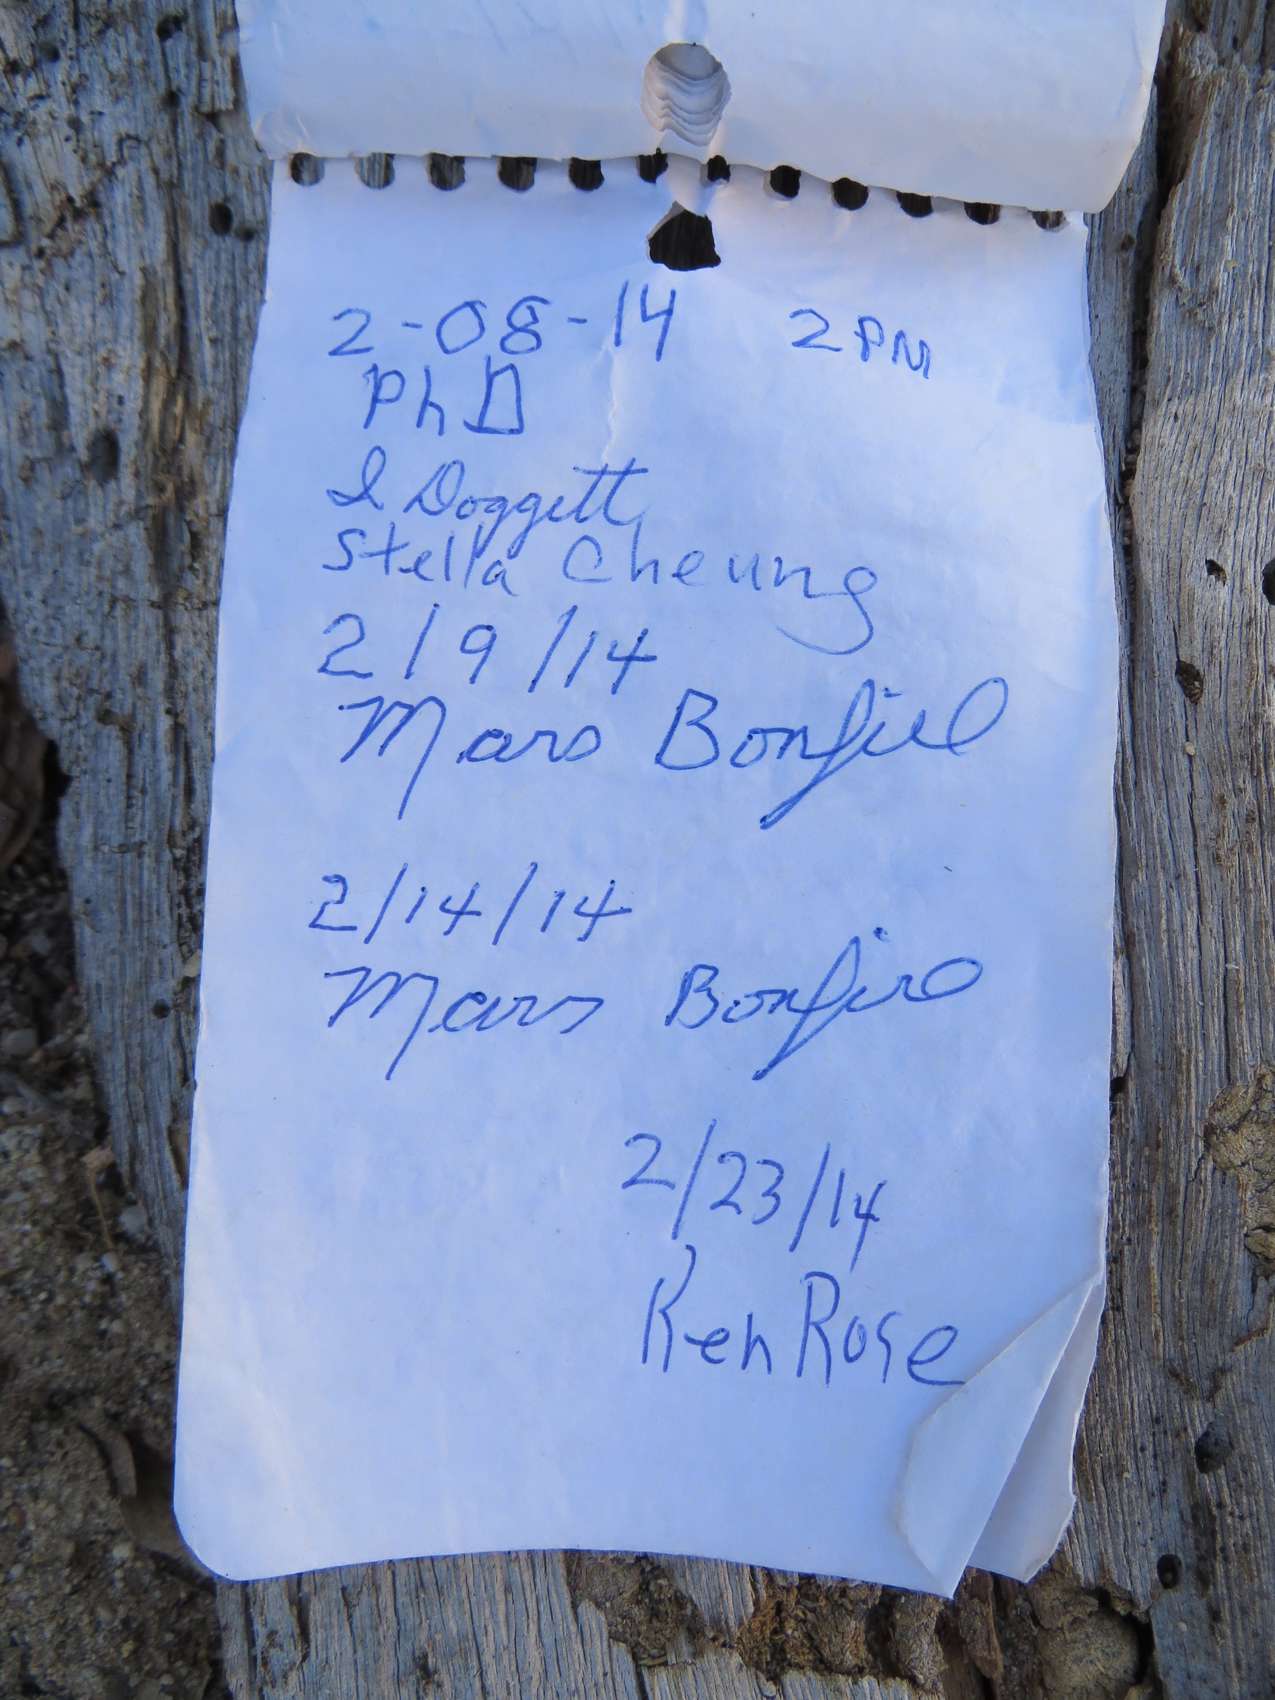 2-08-14 2PM
PhD
I Doggett
Stella Cheung
2/9/14
Mars Bonfire
2/14/14
Mars Bonfire
2/23/14
Ken Rose